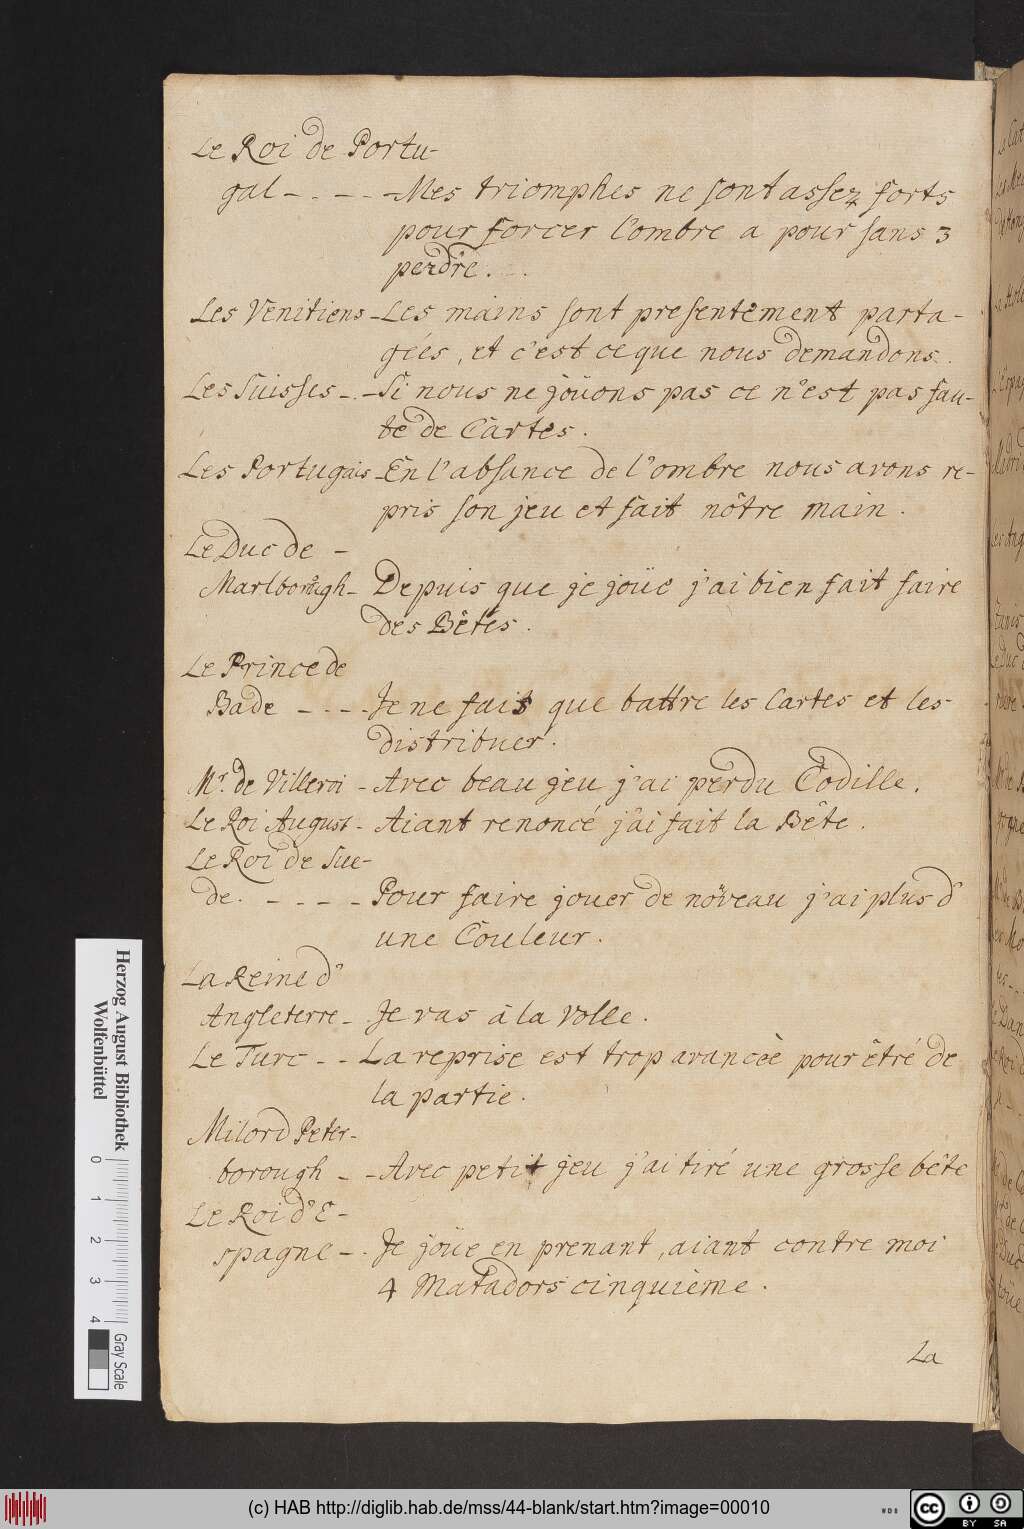 Le Roi de Portu-
gal - . - - -Mes triomphes ne sont assez forts
pour forcer l'ombre a pour sans 3
perdre.
Les Venitiens -Les mains sont presentement parta-
gées, et c'est ce que nous demandons.
Les Suisses - . -Si nous ne joüons pas ce n'est pas fau-
te de Cartes.
Les Portugais -En l'absance de l'ombre nous avons re-
pris son jeu et fait nôtre main.
Le Duc de -
Marlborough- Depuis que je joüe j'ai bien fait faire
des Bêtes.
Le Prince de
Bade - . - . -Je ne fais que battre les Cartes et les
distribuer.
Mr. de Villeroi - Avec beau jeu j'ai perdu Codille.
Le Roi August - Aiant renoncé j'ai fait la Bête.
Le Roi de Sue-
de. - - - - Pour faire jouer de nouveau j'ai plus d'
une Couleur.
La Reine d'
Angleterre - Je vas à la Volle.
Le Turc - - La reprise est trop avancée pour étré de
la partie.
Milord Peter-
borough - -Avec petit jeu j'ai tiré une grosse bête
Le Roi d'E-
spagne - . Je joüe en prenant, aiant contre moi
4 Matadors cinquieme.
La
Herzog August Bibliothek
Wolfenbüttel
0 1 2 3 4
Gray Scale
(c) HAB http://diglib.hab.de/mss/44-blank/start.htm?image=00010
WDB
cc BY SA